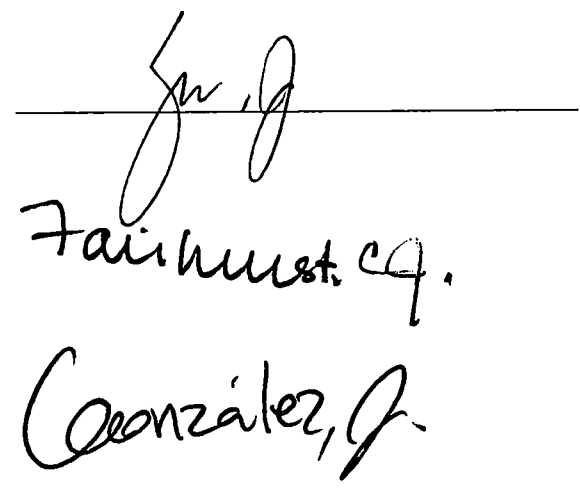 Zuo, J
Fairhurst, CJ.
González, J.